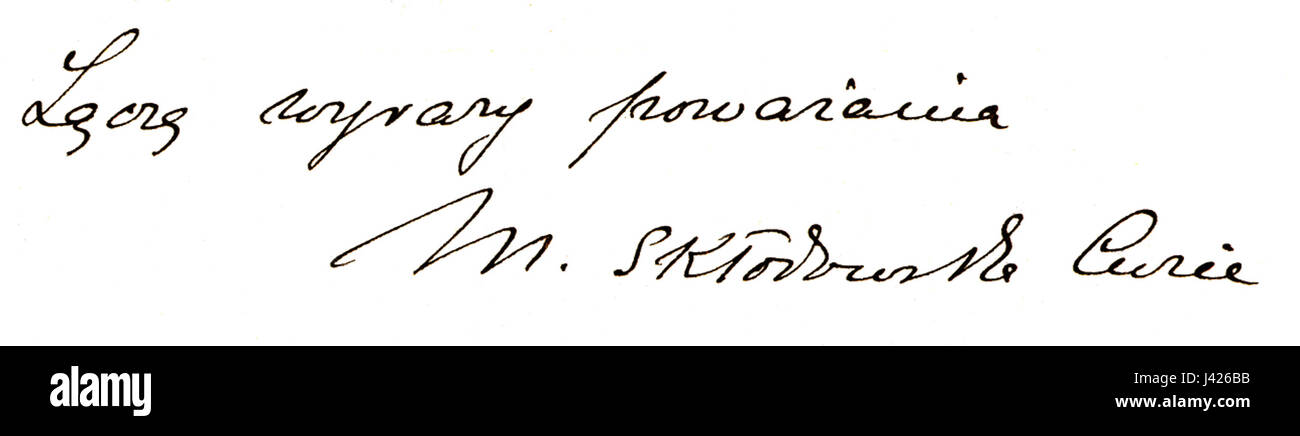 Łączę wyrazy poważania
M. Skłodowska Curie
alamy
Image ID: J426BB
www.alamy.com